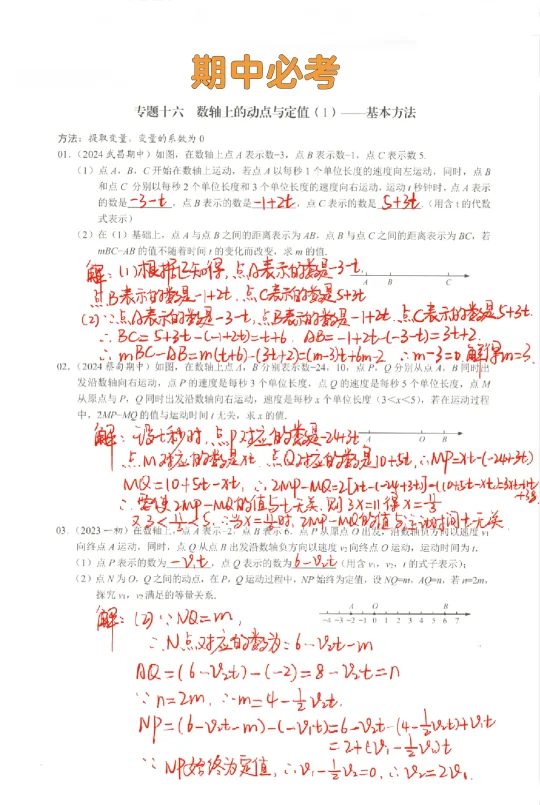 期中必考
专题十六 数轴上的动点与定值(1)——基本方法
方法:提取变量,变量的系数为0
01.(2024武昌期中)如图,在数轴上点A表示数-3,点B表示数-1,点C表示数5.
(1)点A,B,C开始在数轴上运动,若点A以每秒1个单位长度的速度向左运动,同时,点B
和点C分别以每秒2个单位长度和3个单位长度的速度向右运动,运动t秒钟时,点A表示
的数是-3-t,点B表示的数是-1+2t,点C表示的数是5+3t.(用含t的代数
式表示)
(2)在(1)基础上,点A与点B之间的距离表示为AB,点B与点C之间的距离表示为BC,若
mBC-AB的值不随着时间t的变化而改变,求m的值.
解:(1)根据已知得,点A表示的数是-3-t,
A B C
点B表示的数是-1+2t,点C表示的数是5+3t
(2)∵点A表示的数是-3-t,点B表示的数是-1+2t,点C表示的数是5+3t.
∴BC=5+3t-(-1+2t)=t+6,AB=-1+2t-(-3-t)=3t+2.
∴mBC-AB=m(t+6)-(3t+2)=(m-3)t+6m-2 ∴m-3=0,解得m=3.
02.(2024蔡甸期中)如图,在数轴上点A,B分别表示数-24,10,点P,Q分别从点A,B同时出
发沿数轴向右运动,点P的速度是每秒3个单位长度,点Q的速度是每秒5个单位长度,点M
从原点与P,Q同时出发沿数轴向右运动,速度是每秒x个单位长度(3<x<5),若在运动过程
中,2MP-MQ的值与运动时间t无关,求x的值.
解:设t秒时,点P对应的数是-24+3t
A O B
点M对应的数是xt,点Q对应的数是10+5t,∴MP=xt-(-24+3t)
MQ=10+5t-xt,∴2MP-MQ=2[xt-(-24+3t)]-(10+5t-xt)=3xt-11t
+38
∴要使2MP-MQ的值与t无关,则3x=11得x=11/3
又3<11/3<5,∴当x=11/3时,2MP-MQ的值与运动时间t无关
03.(2023一初)在数轴上,点A表示-2,点B表示6,点P从原点O出发,沿数轴负方向以速度v₁
向终点A运动,同时,点Q从点B出发沿数轴负方向以速度v₂向终点O运动,运动时间为t.
(1)点P表示的数为-v₁t,点Q表示的数为6-v₂t(用含v₁,v₂,t的式子表示);
(2)点N为O,Q之间的动点,在P,Q运动过程中,NP始终为定值,设NQ=m,AQ=n,若n=2m,
探究v₁,v₂满足的等量关系.
解:(2)∵NQ=m,
A O B
-4 -3 -2 -1 0 1 2 3 4 5 6 7
∴N点对应的数为:6-v₂t-m
AQ=(6-v₂t)-(-2)=8-v₂t=n
∵n=2m,∴m=4-1/2v₂t.
NP=(6-v₂t-m)-(-v₁t)=6-v₂t-(4-1/2v₂t)+v₁t
=2+(v₁-1/2v₂)t
∵NP始终为定值,∴v₁-1/2v₂=0,∴v₂=2v₁.